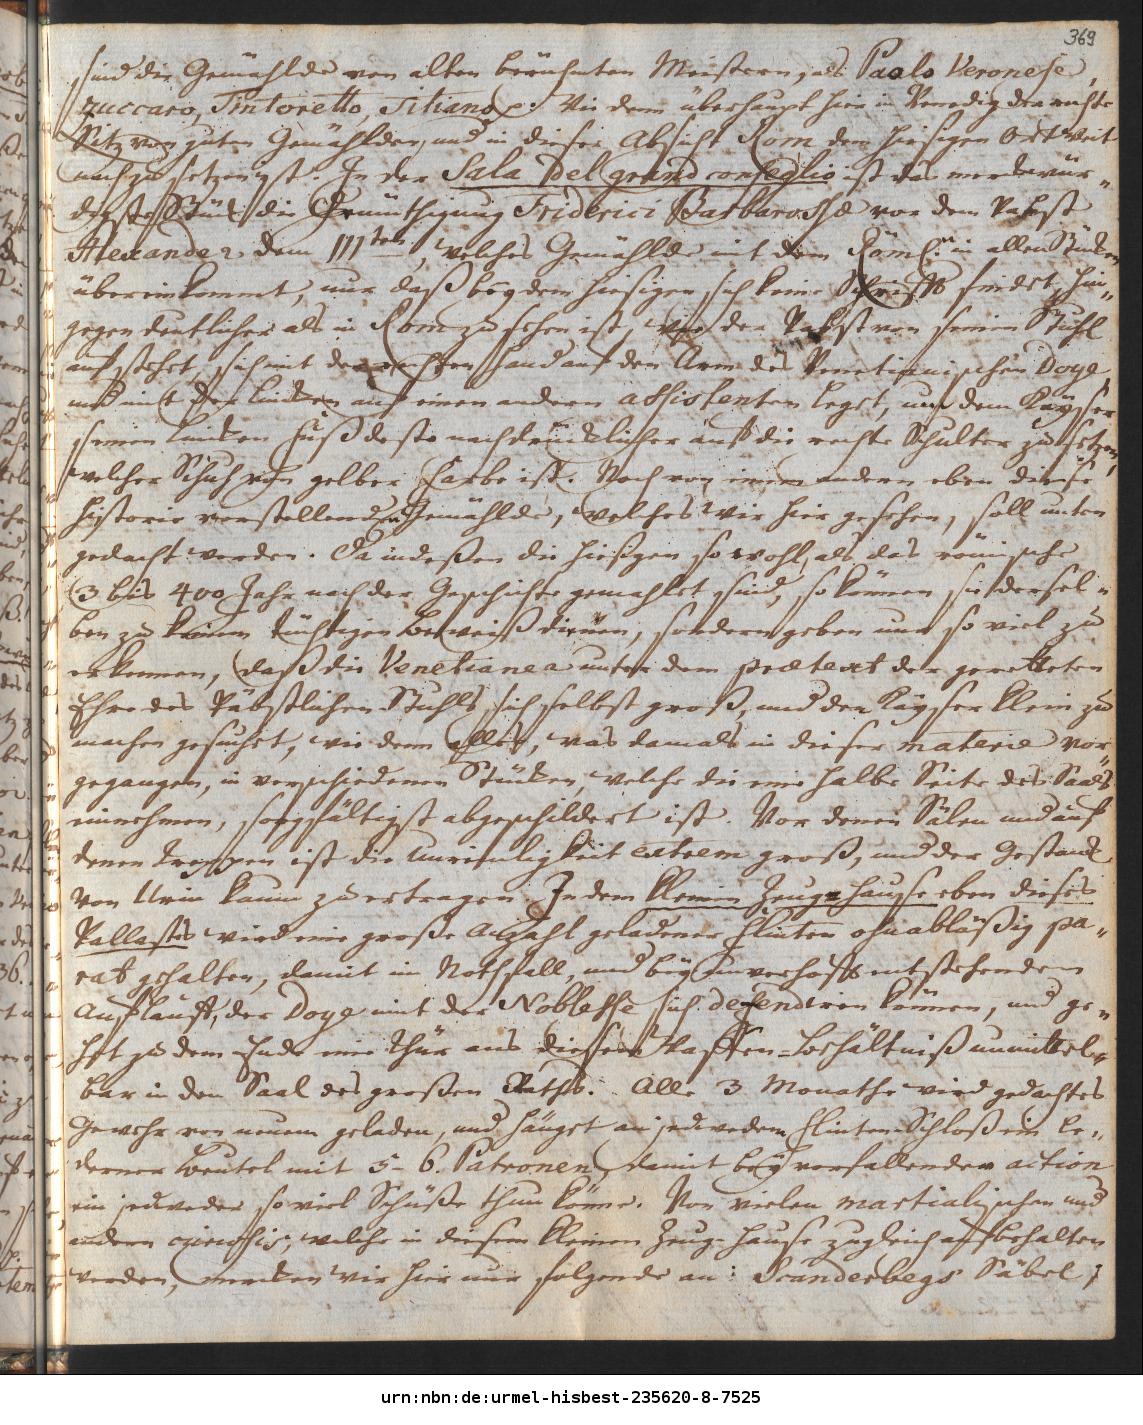 369
sind die Gemählde von alten berühmten Meistern, als Paolo Veronese,
Zuccaro, Tintoretto, Titiano p. Wie denn überhaupt hier in Venedig der rechte
Sitz von guten Gemählden, und in dieser Absicht Rom dem hiesigen Ort weit
nachzusetzen ist. In der Sala del grand conseglio ist das merckwür-
digste Stück die Demüthigung Friderici Barbarossæ vor dem Pabst
Alexander dem IIIten, welches Gemählde mit dem Röm. in allen Stücken
übereinkommt, nur daß bey dem hiesigen sich keine Schrifft findet, hin-
gegen deutlicher als in Rom zu sehen ist, wie der Pabst von seinem Stuhl
auf stehet, sich mit der rechten Hand auf den Arm des Venetianischen Doge
und mit der lincken auf einen andern assistenten leget, um dem Käyser
seinen lincken Fuß desto nachdrücklicher auf die rechte Schulter zu setzen,
welcher Schuh von gelber Farbe ist. Noch von einem andern eben diese
Historie vorstellenden Gemählde, welches wir hier gesehen, soll unten
gedacht werden. Da indeßen die hießgen sowohl, als das römische
3 bis 400 Jahr nach der Geschichte gemahlet sind, so können sie dersel-
ben zu keinem tüchtigen Beweiß dienen, sondern geben nur so viel zu
erkennen, daß die Venetianer unter dem prætext der geretteten
Ehre des Päbstlichen Stuhls, sich selbst groß, und den Käyser klein zu
machen gesuchet, wie denn alles, was damals in dieser materie vor-
gegangen, in verschiedenen Stücken, welche die eine halbe Seite des Saals
einnehmen, sorgfältigst abgeschildert ist. Vor denen Sälen und auf
denen Treppen ist die Unreinligkeit extrem groß, und der Gestanck
von Urin kaum zu ertragen. In dem kleinen Zeug-Hause eben dieses
Pallastes wird eine große Anzahl geladener Flinten ohnabläßig pa-
rat gehalten, damit im Nothfall, und bey unverhofft entstehendem
Auflauff, der Doge mit der Noblesse sich defendiren können, und ge-
het zu dem Ende eine Thür aus diesem Waffen-Behältniß unmittel-
bar in den Saal des großen Raths. Alle 3 Monathe wird gedachtes
Gewehr von neuem geladen, und hänget an jedwedem Flinten-Schloß ein le-
derner Beutel mit 5-6. Patronen, damit bey vorfallender action
ein jedweder so viel Schüße thun könne. Von vielen martialischen und
andern curiosis, welche in diesem kleinen Zeug-Hause zugleich aufbehalten
werden, mercken wir hier nur folgende an: Scanderbegs Säbel;
urn:nbn:de:urmel-hisbest-235620-8-7525